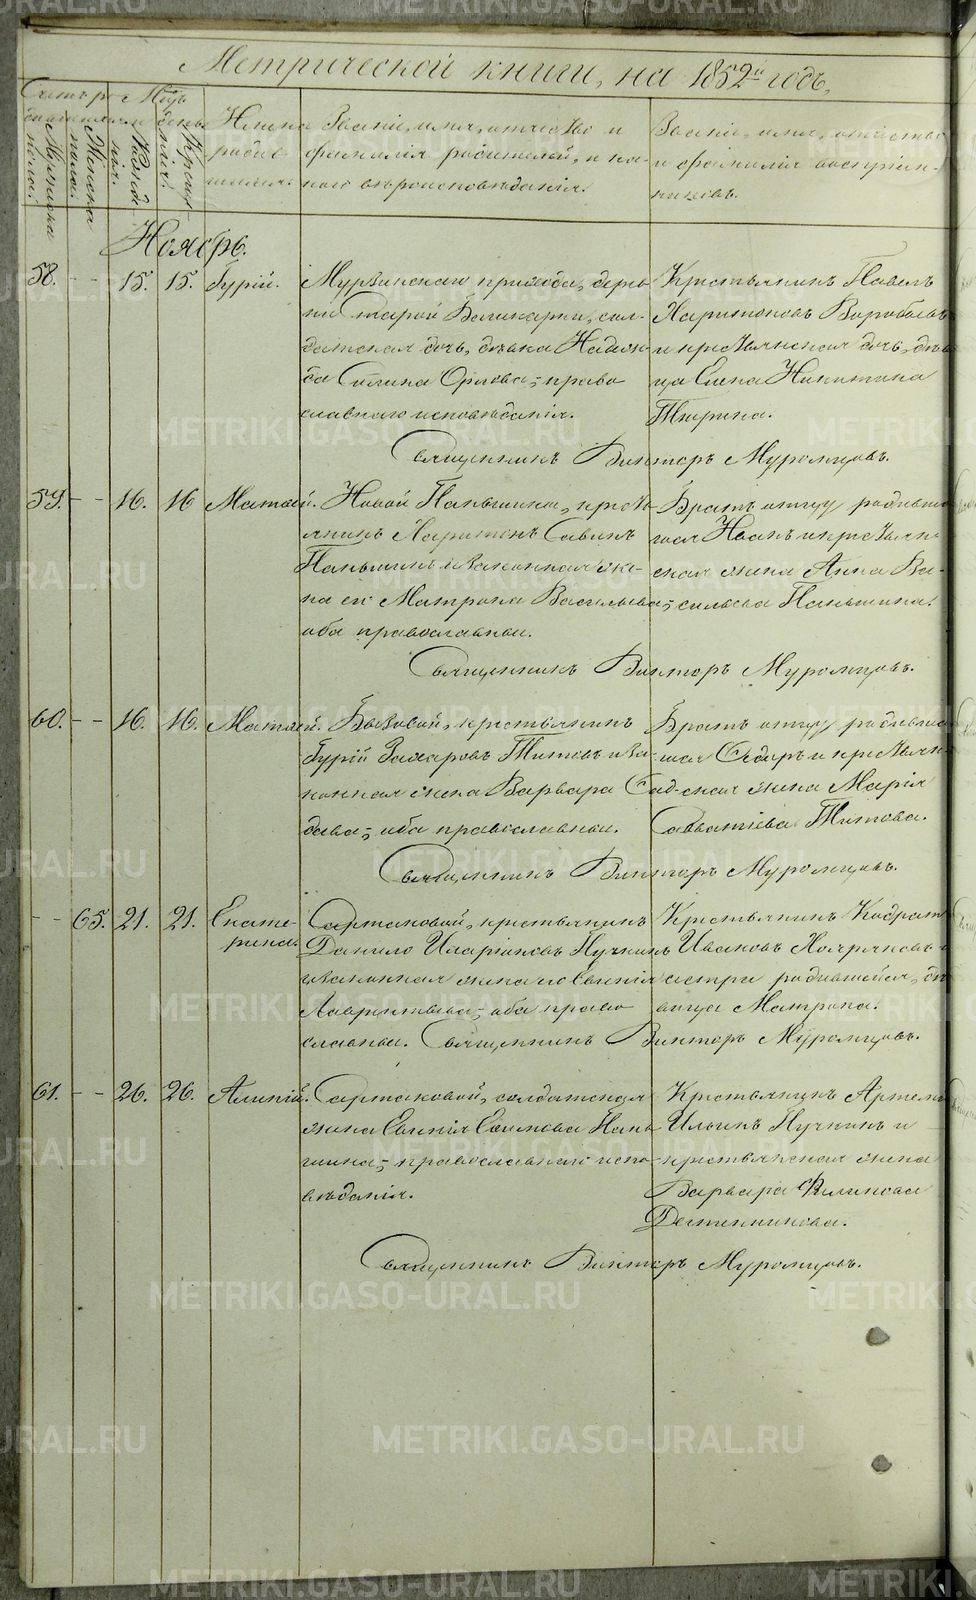 Метрической книги, на 1852й годъ,
Счетъ ро-
Мѣсяцъ и день.
Мужеска пола.
Женска пола.
Рожденія.
Крещенія.
Имена родившихся.
Званіе, имя, отчество и
фамилія родителей, и ка-
кого вѣроисповѣданія.
Званіе, имя, отчество
и фамилія воспріем-
никовъ.
Ноябрь.
58. - - 15. 15. Гурій. Мурзинскаго прихода, дерев-
ни Старой
солдатская дочь, дѣвка Надеж-
да Орлова, право-
славнаго исповѣданія.
Крестьянинъ Павелъ
Харитоновъ Воробьевъ
и крестьянская дочь, дѣви-
ца Елена Никитина
Священникъ Викторъ Муромцовъ.
59. - - 16. 16 Матѳей. Новой Паньшиной, кресть-
янинъ Харитонъ Савинъ
Паньшинъ и законная же-
на его Матрона Васильева,
оба православные.
Братъ отцу родивша-
гося Иванъ и крестьян-
ская жена Анна Ва-
сильева Паньшина.
Священникъ Викторъ Муромцовъ.
60. - - 16. 16. Матѳей. Бызовой, крестьянинъ
Гурій Захаровъ Титовъ и за-
конная жена Варвара
оба православные.
Братъ отцу родивша-
гося Ѳедоръ и крестьян-
ская жена Марія
Савватіева Титова.
Священникъ Викторъ Муромцовъ.
- - 65. 21. 21. Екате-
рина.
Сартаковой, крестьянинъ
Данило Иларіоновъ Пучкинъ
и законная жена его Евгенія
Лаврентьева, оба право-
славные.
Крестьянинъ Кодратъ
Ивановъ
сестра родившейся, дѣ-
вица Матрона.
Священникъ Викторъ Муромцовъ.
61. - - 26. 26. Алипій. Сартаковой, солдатская
жена Евгенія Евѳимова Пань-
шина, православнаго испо-
вѣданія.
Крестьянинъ Артемій
Ильинъ Пучкинъ и
крестьянская жена
Варвара Филипова
Священникъ Викторъ Муромцовъ.
METRIKI.GASO-URAL.RU